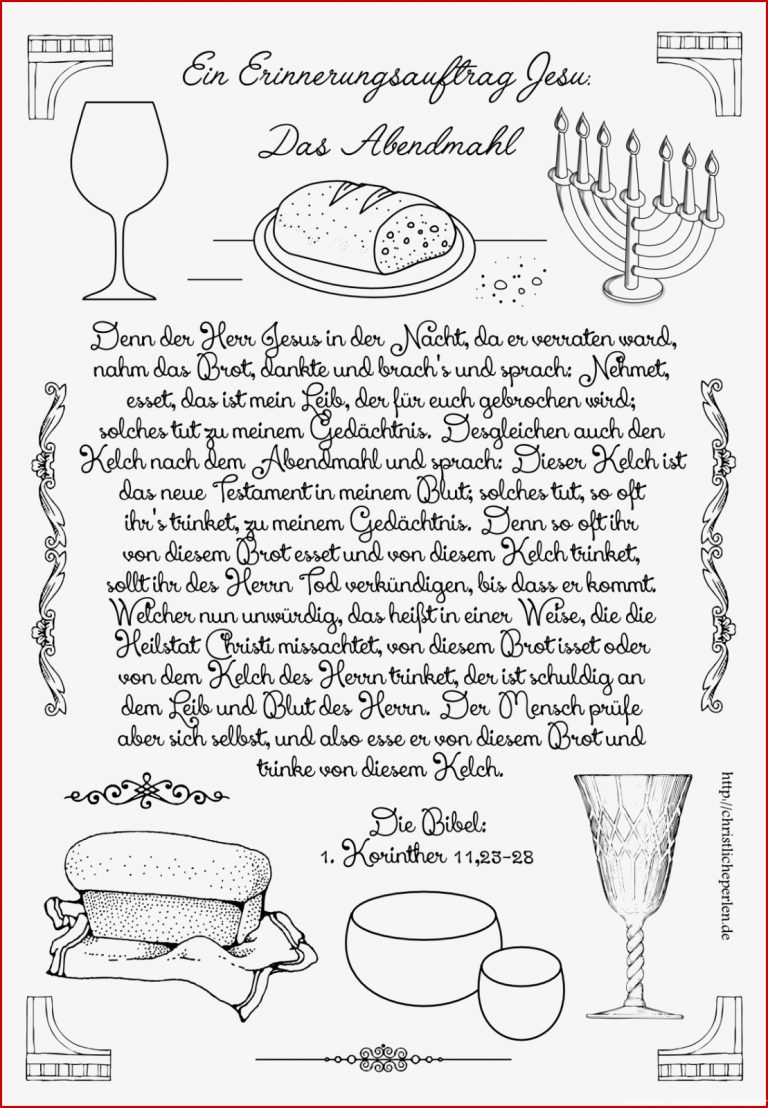 Ein Erinnerungsauftrag Jesu:
Das Abendmahl
Denn der Herr Jesus in der Nacht, da er verraten ward,
nahm das Brot, dankte und brach's und sprach: Nehmet,
esset, das ist mein Leib, der für euch gebrochen wird;
solches tut zu meinem Gedächtnis. Desgleichen auch den
Kelch nach dem Abendmahl und sprach: Dieser Kelch ist
das neue Testament in meinem Blut; solches tut, so oft
ihr's trinket, zu meinem Gedächtnis. Denn so oft ihr
von diesem Brot esset und von diesem Kelch trinket,
sollt ihr des Herrn Tod verkündigen, bis dass er kommt.
Welcher nun unwürdig, das heißt in einer Weise, die die
Heilstat Christi missachtet, von diesem Brot isset oder
von dem Kelch des Herrn trinket, der ist schuldig an
dem Leib und Blut des Herrn. Der Mensch prüfe
aber sich selbst, und also esse er von diesem Brot und
trinke von diesem Kelch.
Die Bibel:
1. Korinther 11,23-28
http://christlicheperlen.de